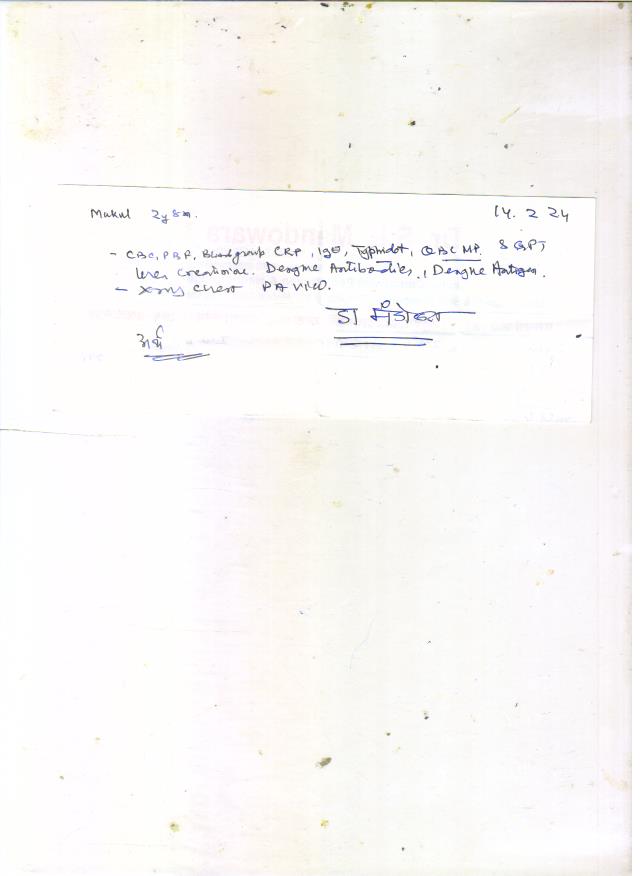 Mukul 2y 8m. 14. 2 24
- CBC, PBF, Blood group CRP, IgE, Typhidot, QBC MP. SGPT
Urea Creatinine. Dengue Antibodies, Dengue Antigen.
- Xray Chest PA View.
डा